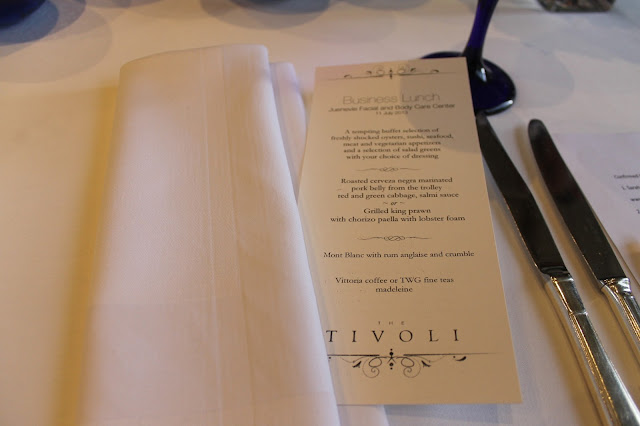 Business Lunch
Jusnarde Facial and Body Care Center
11 July 2013
A tempting buffet selection of
freshly shucked oysters, sushi, seafood,
meat and vegetarian appetizers
and a selection of salad greens
with your choice of dressing
Roasted cerveza negra marinated
pork belly from the trolley
red and green cabbage, salmi sauce
~ or ~
Grilled king prawn
with chorizo paella with lobster foam
Mont Blanc with rum anglaise and crumble
Vittoria coffee or TWG fine teas
madeleine
THE
TIVOLI
Confirmed